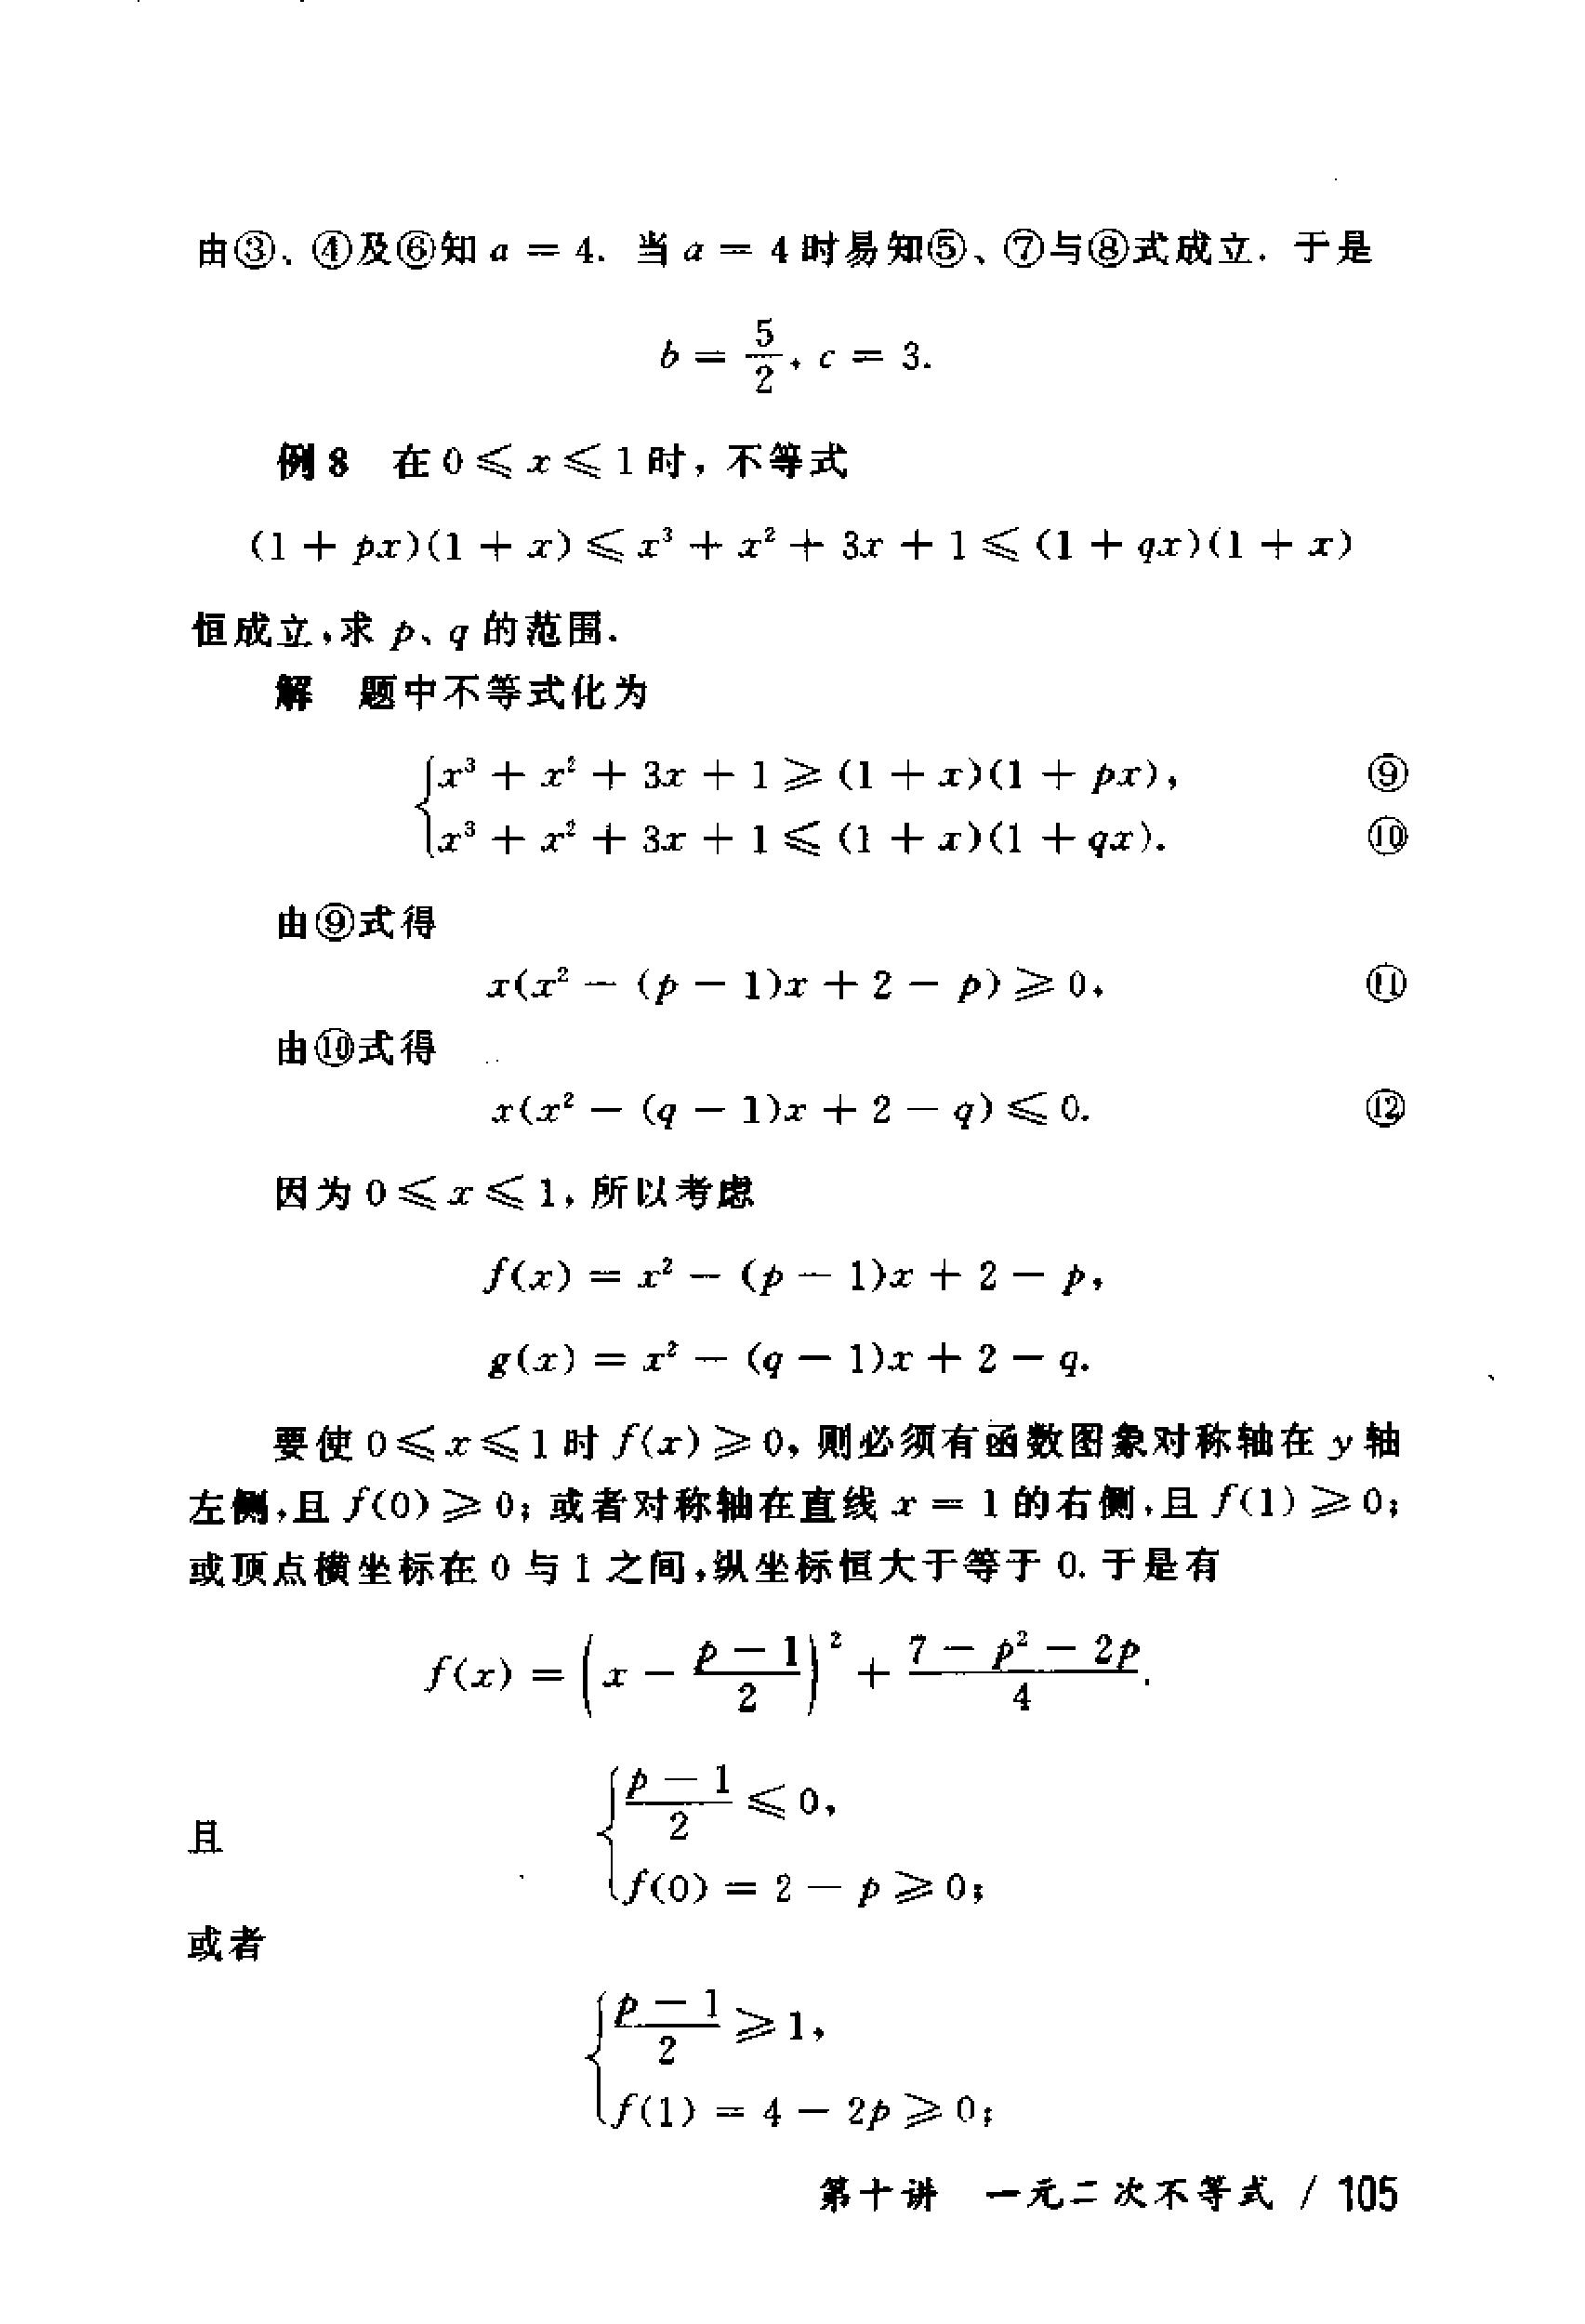 由③、④及⑥知 a = 4. 当 a = 4 时易知⑤、⑦与⑧式成立. 于是
b = 5/2, c = 3.
例 8 在 0 ⩽ x ⩽ 1 时, 不等式
(1 + px)(1 + x) ⩽ x³ + x² + 3x + 1 ⩽ (1 + qx)(1 + x)
恒成立,求 p、q 的范围.
解 题中不等式化为
{x³ + x² + 3x + 1 ⩾ (1 + x)(1 + px), ⑨
x³ + x² + 3x + 1 ⩽ (1 + x)(1 + qx). ⑩
由⑨式得
x(x² − (p − 1)x + 2 − p) ⩾ 0, ⑪
由⑩式得
x(x² − (q − 1)x + 2 − q) ⩽ 0. ⑫
因为 0 ⩽ x ⩽ 1, 所以考虑
f(x) = x² − (p − 1)x + 2 − p,
g(x) = x² − (q − 1)x + 2 − q.
要使 0 ⩽ x ⩽ 1 时 f(x) ⩾ 0, 则必须有函数图象对称轴在 y 轴
左侧,且 f(0) ⩾ 0; 或者对称轴在直线 x = 1 的右侧,且 f(1) ⩾ 0;
或顶点横坐标在 0 与 1 之间,纵坐标恒大于等于 0. 于是有
f(x) = (x − (p − 1)/2)² + (7 − p² − 2p)/4.
且 {(p − 1)/2 ⩽ 0,
f(0) = 2 − p ⩾ 0;
或者
{(p − 1)/2 ⩾ 1,
f(1) = 4 − 2p ⩾ 0;
第十讲 一元二次不等式 / 105